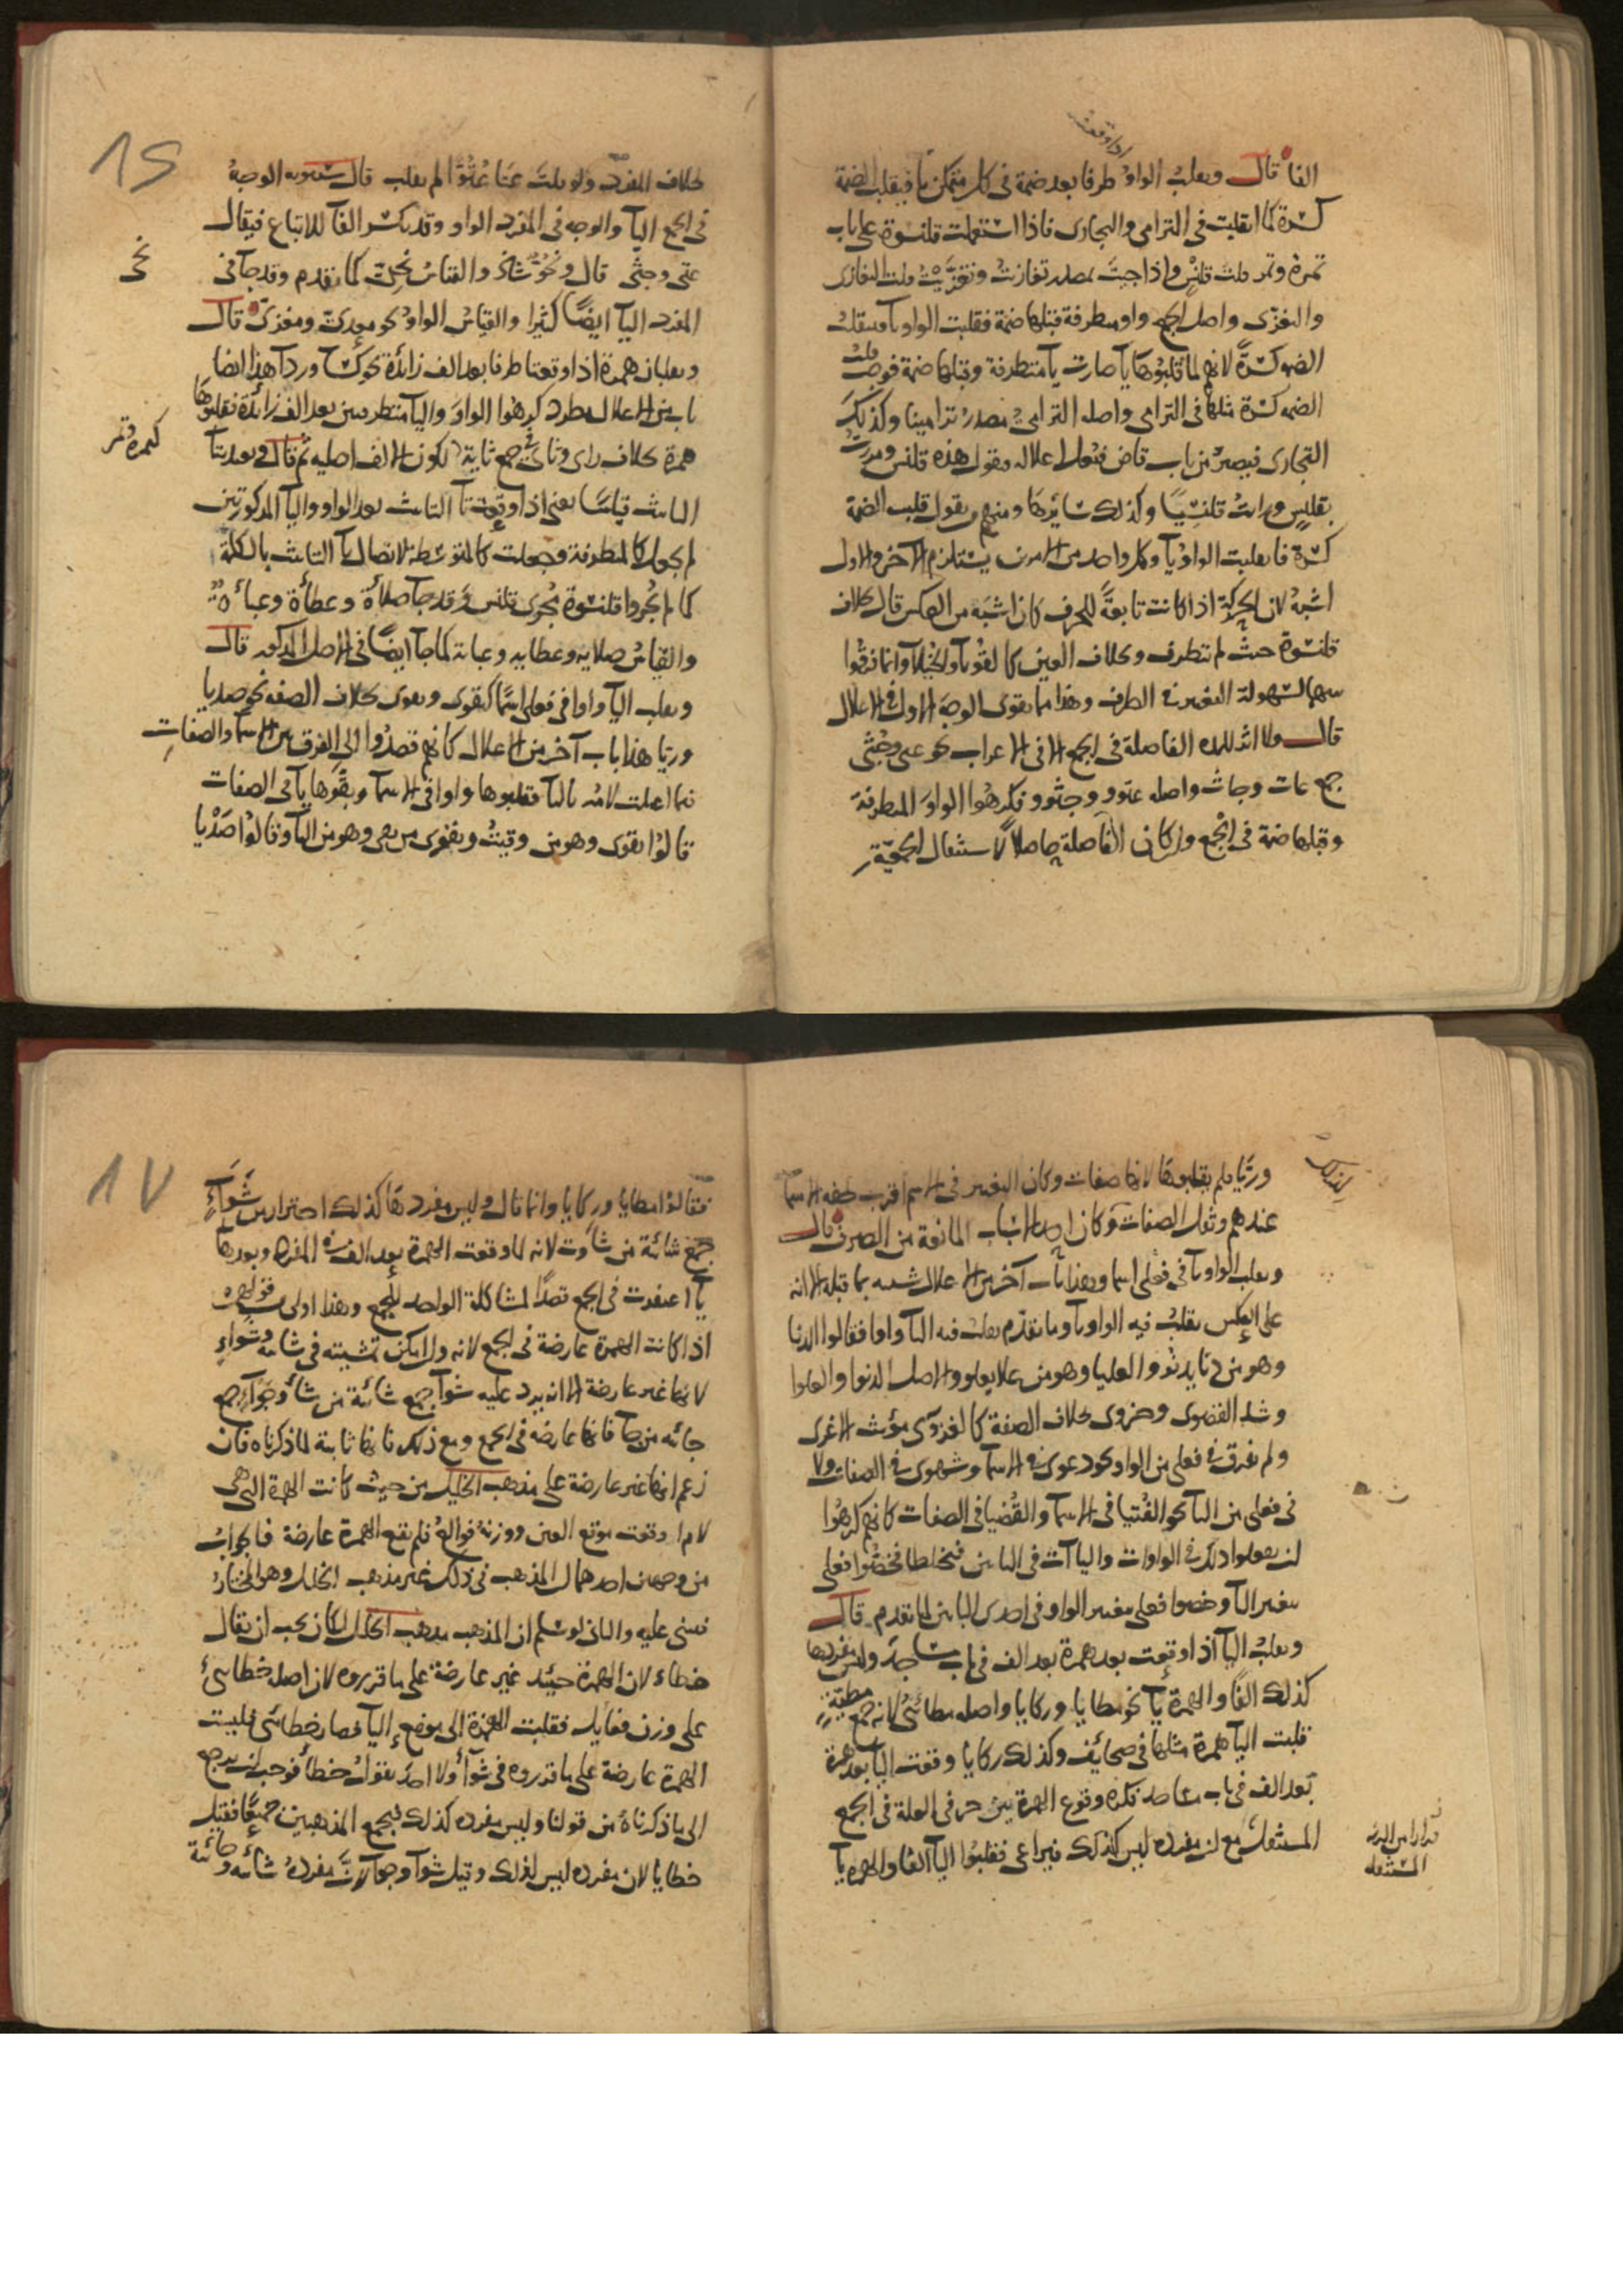 اذا وقعت
الفا قال وتقلب الواو طرفا بعد ضمة فى كل متمكن يا فيقلب الضمة
كسرة كما انقلبت فى الترامى والتجارى فاذا استعملت قلنسوة على باب
تمرة وتمر قلت قلنس واذا جيت بمصدر تغازيت وتغزيت قلت التغازى
والتغزى واصل الجميع واو متطرفة قبلها ضمة فقلبت الواو يا
الضمة كسرة لانهم لما قلبوها يا صارت يا متطرفة وقبلها ضمة
الضمة كسرة مثلها فى الترامى واصله الترامى مصدر ترامينا وكذلك
التجارى فيصير من باب قاض فتعل اعلاله فتقول هذه قلنس ومررت
بقلنس ورايت قلنسيا وكذلك سائرها ومنهم من يقول قلب الضمة
كسرة فانقلبت الواو يا وكل واحد من الامرين يستلزم الآخر والاول
اشبه لان الحركة اذا كانت تابعة للحرف كان اشبه من العكس قال بخلاف
قلنسوة حيث لم تتطرف وبخلاف العين كالقوبا والخيلا وانما فرقوا
بينهما لسهولة التغيير فى الطرف وهذا مما يقوى الوجه الاول فى الاعلال
قال ولا اثر للمدة الفاصلة فى الجمع الا فى الاعراب نحو عتى وجثى
جمع عات وجاث واصله عتوو وجثوو فكرهوا الواو المتطرفة
وقبلها ضمة فى الجمع وان كان الفاصلة حاصلا لاستثقال الجمعية
١٦
بخلاف المفرد ولو قلت عتا عتوا لم يقلب قال سيبويه الوجه
فى الجمع اليا والوجه فى المفرد الواو وقد تكسر الفا للاتباع فيقال
عتى وجثى قال ونحو شاذ والقياس نحى كما تقدم وقد جا فى
نحى
المفرد اليا ايضا كثيرا والقياس الواو نحو معدى ومغزى قال
وتقلبان همزة اذا وقعتا طرفا بعد الف زائدة نحو كسا وردا هذا ايضا
باب من الاعلال مطرد كرهوا الواو واليا متطرفتين بعد الف زائدة فقلبوها
همزة بخلاف راى وثاى فى جمع ثاية لكون الالف اصلية ثم قال وبعد يتا
كهمزة تمر
التانيث قياسا يعنى اذا وقعت تا التانيث بعد الواو واليا المذكورتين
لم يجعلا كالمتطرفة وجعلت كالمتوسطة لاتصال تا التانيث بالكلمة
كما لم يجروا قلنسوة مجرى قلنس وقد جا صلاة وعظاة وعباة
والقياس صلاية وعظاية وعباية كما جا ايضا فى الاصل المذكور قال
وتقلب اليا واوا فى فعلى اسما كتقوى وبقوى بخلاف الصفة نحو صديا
وريا هذا باب آخر من الاعلال كانهم قصدوا الى الفرق بين الاسما والصفات
فيما اعلت لامه باليا فقلبوها واوا فى الاسما وبقوها يا فى الصفات
قالوا تقوى وهو من وقيت وبقوى من بقى وهو من اليا وقالوا صديا
وريا فلم يقلبوها لانها صفات وكان التغيير فى الاسم اقرب لخفة الاسما
عندهم وثقل الصفات وكان احد الاسباب المانعة من الصرف قال
وتقلب الواو يا فى فعلى اسما وهذا باب آخر من الاعلال شبيه بما قبله الا انه
على العكس تقلب فيه الواو يا وما تقدم تقلب فيه اليا واوا فقالوا الدنيا
وهو من دنا يدنو والعليا وهو من علا يعلو والاصل الدنوا والعلوا
وشذ القصوى وحزوى بخلاف الصفة كالغزوى مؤنث الاغزى
ولم يفرق فى فعلى من الواو نحو دعوى فى الاسما وشهوى فى الصفات ولا
فى فعلى من اليا نحو الفتيا فى الاسما والقضيا فى الصفات كانهم كرهوا
ان يفعلوا ذلك فى الواوات والياآت فى البابين فيختلطا فخصوا فعلى
بتغيير اليا وخصوا فعلى بتغيير الواو فى احدى البابين لما تقدم قال
وتقلب اليا اذا وقعت بعد همزة بعد الف فى باب مساجد وليس مفردها
كذلك الفا والهمزة يا نحو مطايا وركايا واصله مطائى لانه جمع مطية
قلبت اليا همزة مثلها فى صحائف وكذلك ركايا وقعت اليا بعد همزة
بعد الف فى باب مساجد فكره وقوع الهمزة بين حرفى العلة فى الجمع
المستثقل مع ان مفرده ليس كذلك فيراعى فقلبوا اليا الفا والهمزة يا
١٧
فقالوا مطايا وركايا وانما قال وليس مفردها كذلك احترازا من شواء
جمع شائية من شاوت لانه لما وقعت الهمزة بعد الف فى المفرد وبعدها
يا اغتفرت فى الجمع قصدا لمشاكلة الواحد للجمع وهذا اولى من قولهم
اذا كانت الهمزة عارضة فى الجمع لانه وان امكن تمشيته فى شائية وشواء
لانها غير عارضة الا انه يرد عليه شواء جمع شائية من شاء وجواء جمع
جائية من جا فانها عارضة فى الجمع ومع ذلك فانها ثابتة لما ذكرناه فان
زعم انها غير عارضة على مذهب الخليل من حيث كانت الهمزة التى هى
لاما وقعت موقع العين ووزنه فوالع فلم تقع الهمزة عارضة فالجواب
من وجهين احدهما ان المذهب فى ذلك غير مذهب الخليل وهو المختار
فيبنى عليه والثانى لو سلم ان المذهب مذهب الخليل لكان يجب ان يقال
خطاء لان الهمزة حينئذ غير عارضة على ما قرروه لان اصله خطائئ
على وزن فعايل فقلبت الهمزة الى موضع اليا فصار خطائى فليست
الهمزة عارضة على ما قدروه فى شواء ولا احد يقول خطاء فوجب ان يرجع
الى ما ذكرناه من قولنا وليس مفرده كذلك فيجمع المذهبين جميعا فقيل
خطايا لان مفرده ليس كذلك وقيل شواء وجواء لان مفرده شائية وجائية